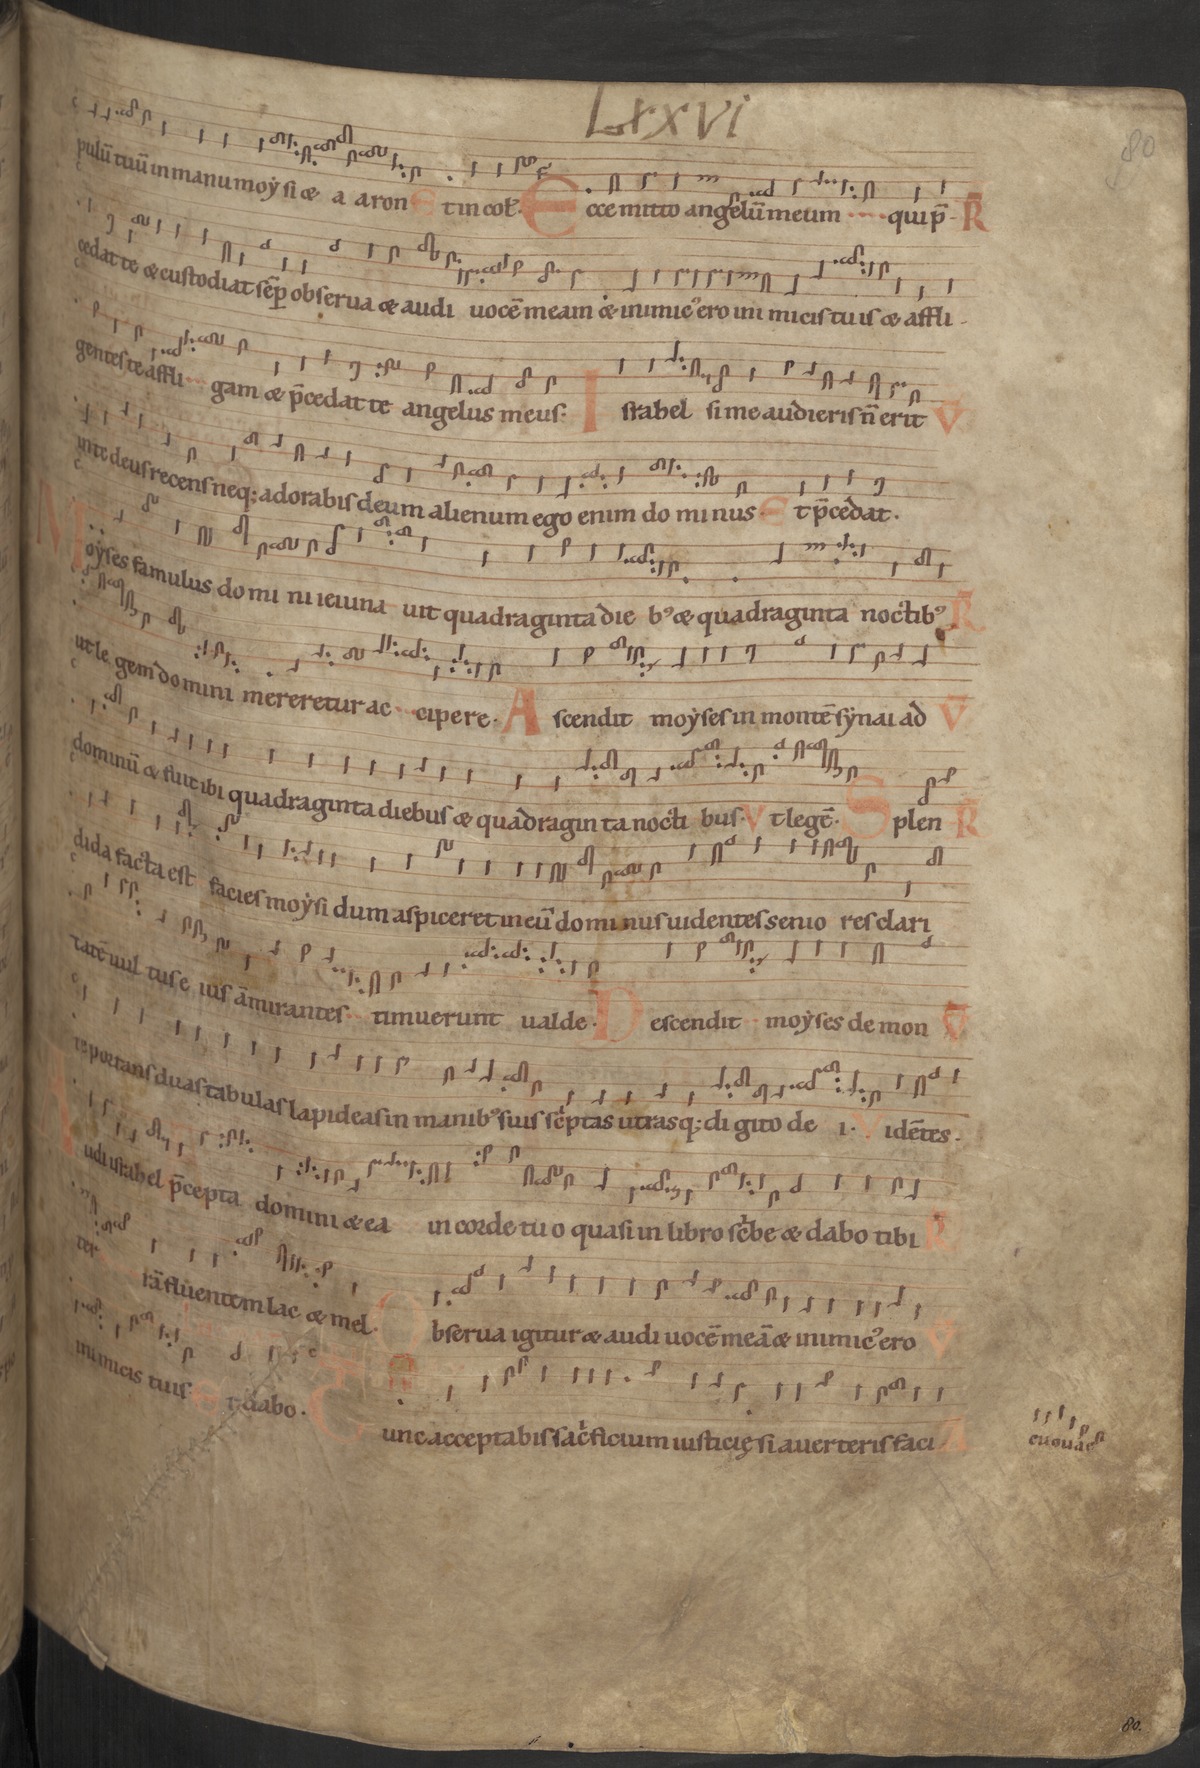 LxxVi
80
pulū tuū in manu moẏ si æ a aron Et in col̅. Ecce mitto angelū meum qui p̄ R̄
cedat te æ custodiat sēp obserua æ audi uocē meam æ inimicꝰ ero ini micis tuis æ affli
gentes te affli gam æ p̄cedat te angelus meus. Israhel si me audieris n̄ erit V̄
in te deus recens neq; adorabis deum alienum ego enim do mi nus Et p̄cedat.
Moẏses famulus do mi ni ieiuna uit quadraginta die bꝰ æ quadraginta noctibꝰ R̄
ut le gem do mini mereretur ac cipere. Ascendit moẏses in montē sẏnai ad V̄
dominū æ fuit ibi quadraginta diebus æ quadragin ta nocti bus. Vt legē. Splen R̄
dida facta est facies moẏsi dum aspiceret in eū do mi nus uidentes senio res clari
tatē uul tus e ius āmirantes timuerunt ualde. Descendit moẏses de mon V̄
te portans duas tabulas lapideas in manibꝰ suis sc̄ptas utrasq; di gito de i. Vidētes.
Audi israhel p̄cepta domini æ ea in corde tu o quasi in libro sc̄be æ dabo tibi R̄
ter rā fluentem lac æ mel. Obserua igitur æ audi uocē meā æ inimicꝰ ero V̄
inimicis tuis Et dabo. Tunc acceptabis sac̄ficium iusticię si auerteris faci A
euouae
80.